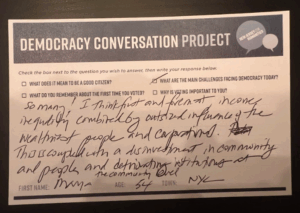 DEMOCRACY CONVERSATION PROJECT
Check the box next to the question you wish to answer, then write your response below.
WHAT DOES IT MEAN TO BE A GOOD CITIZEN?
WHAT ARE THE MAIN CHALLENGES FACING DEMOCRACY TODAY?
WHAT DO YOU REMEMBER ABOUT THE FIRST TIME YOU VOTED?
WHY IS VOTING IMPORTANT TO YOU?
So many! I think first and foremost income
inequality combined by outsized influence of the
wealthiest people and corporations.
This is coupled with a disinvestment in community
and people, and institutions at
the community level
FIRST NAME: AGE: 54 TOWN: NYC